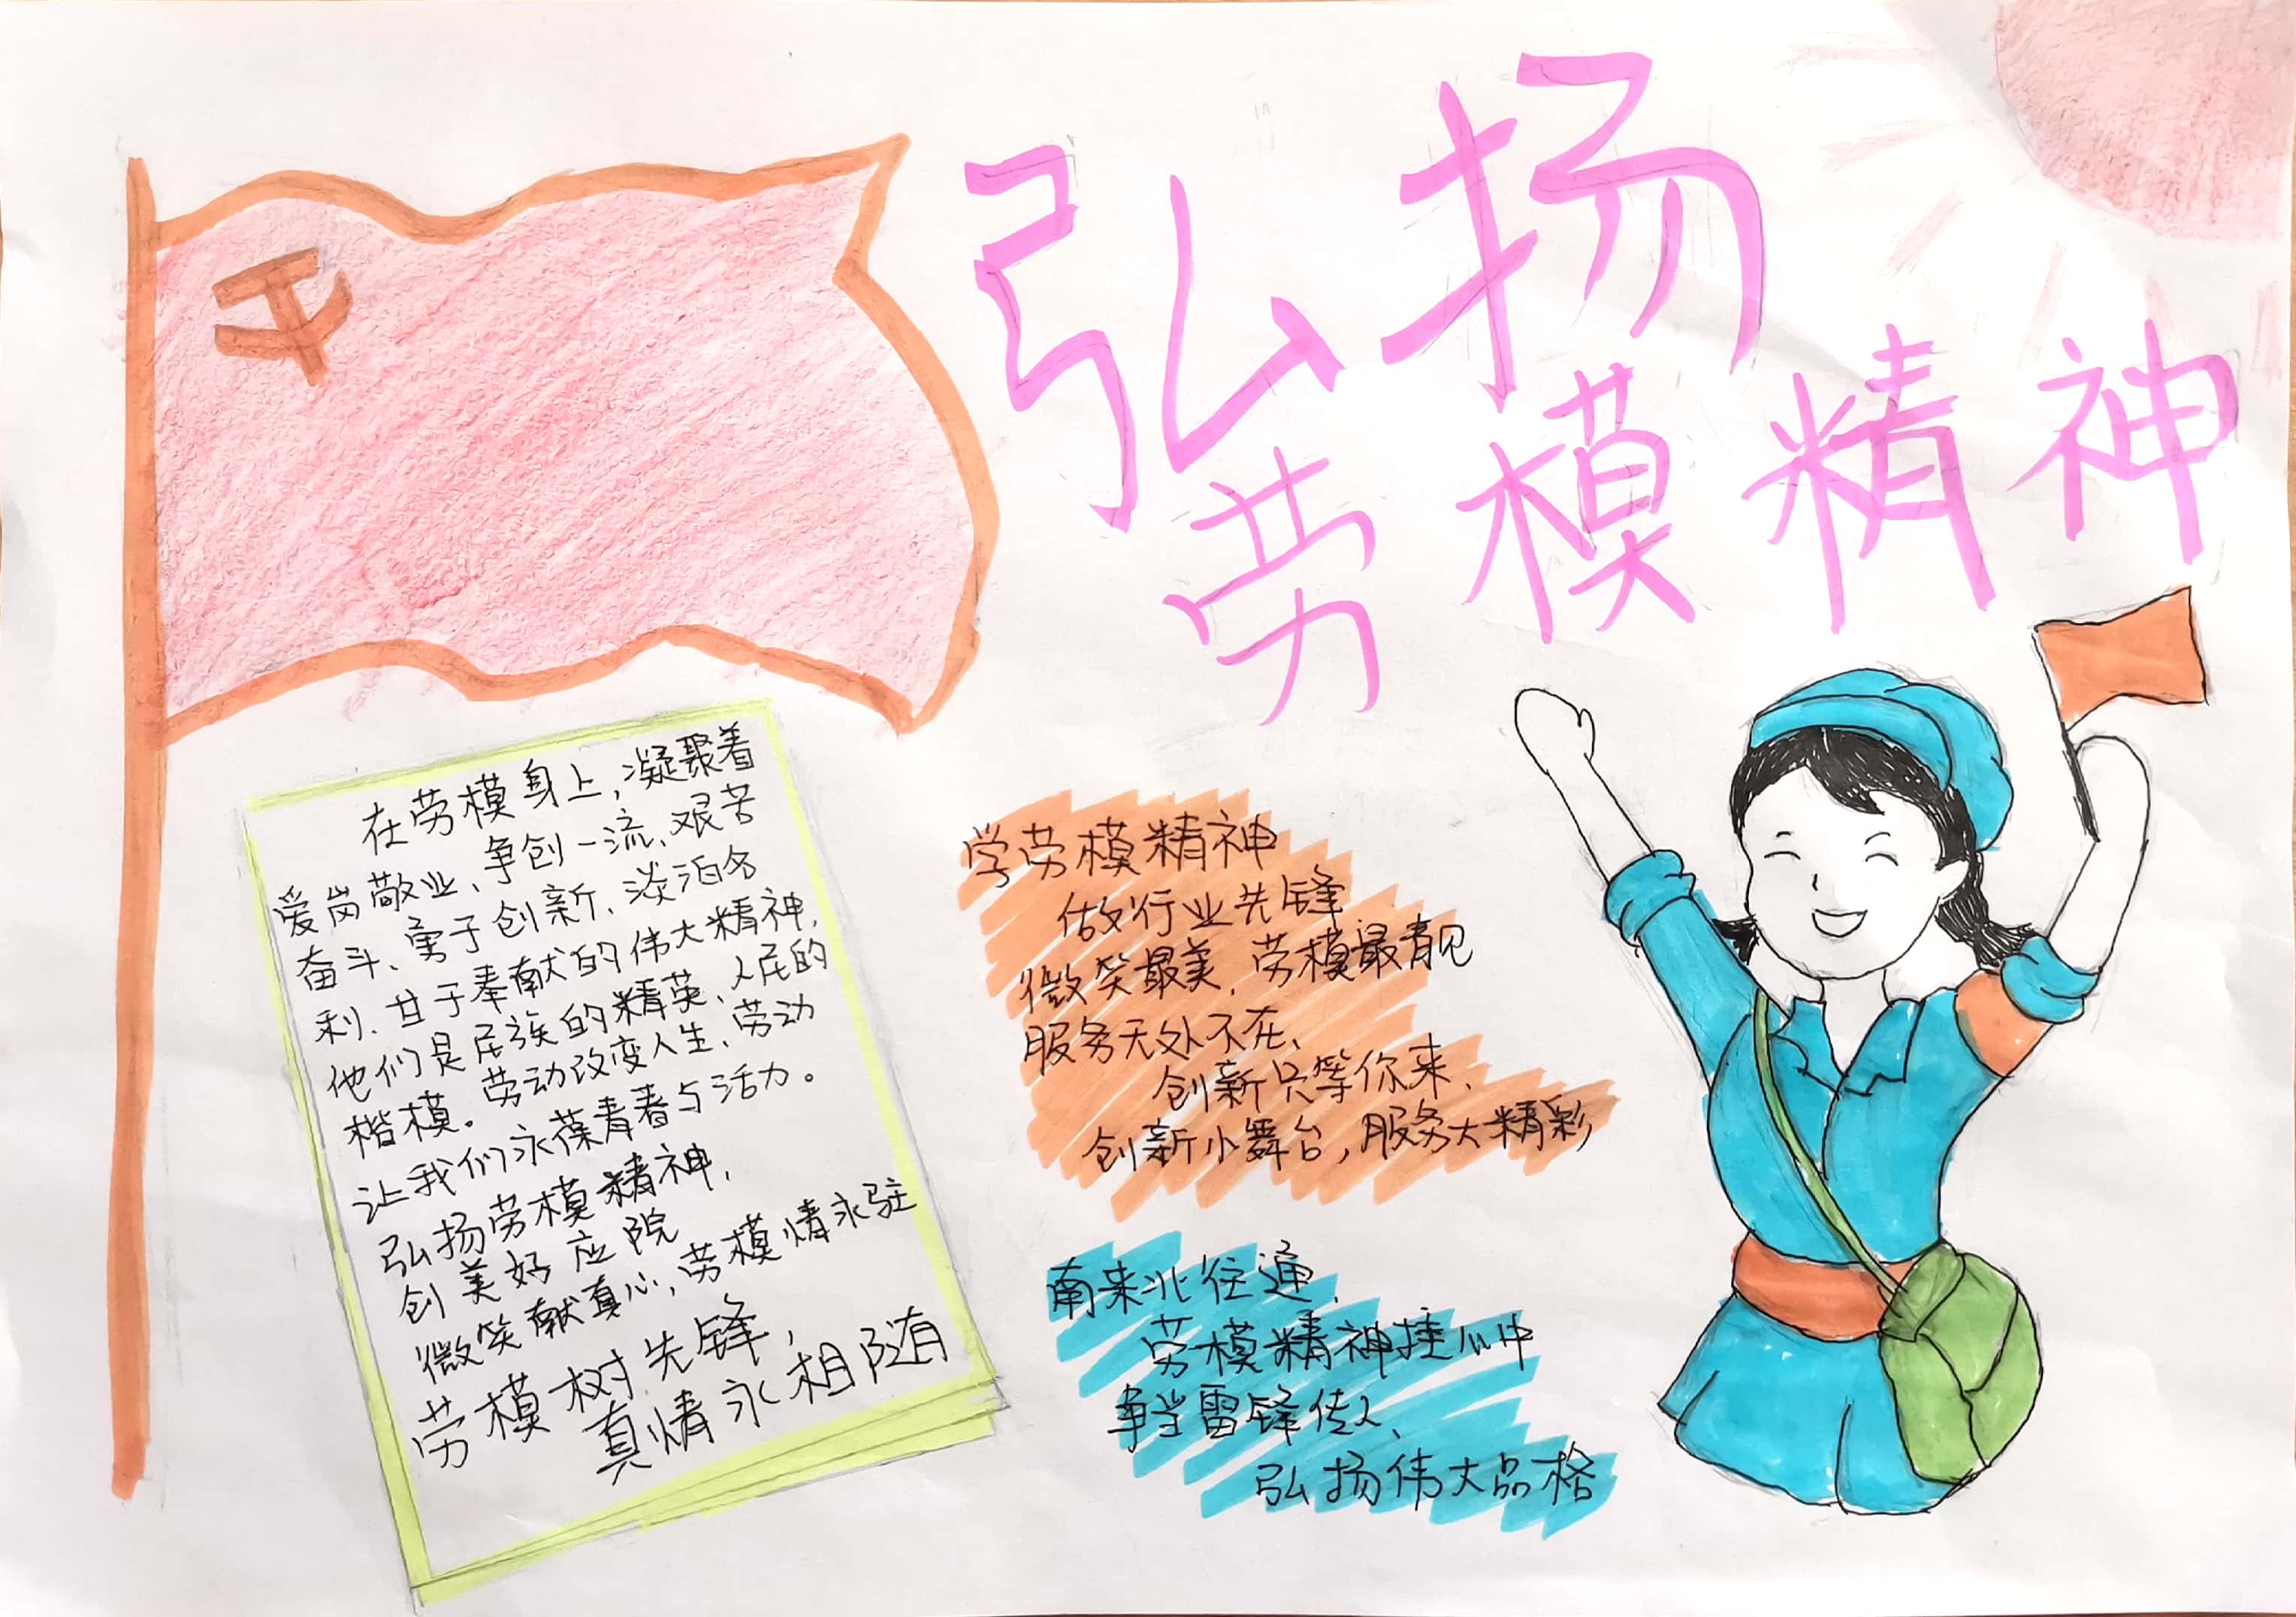 弘扬
劳模精神
在劳模身上，凝聚着
爱岗敬业、争创一流、艰苦
奋斗、勇于创新、淡泊名
利、甘于奉献的伟大精神，
他们是民族的精英、人民的
楷模。劳动改变人生、劳动
让我们永葆青春与活力。
弘扬劳模精神，
创美好应院
微笑献真心，劳模情永驻
劳模树先锋，
真情永相随
学劳模精神
做行业先锋
微笑最美，劳模最靓
服务无处不在、
创新只等你来、
创新小舞台，服务大精彩
南来北往通，
劳模精神挂心中
争当雷锋传人、
弘扬伟大品格